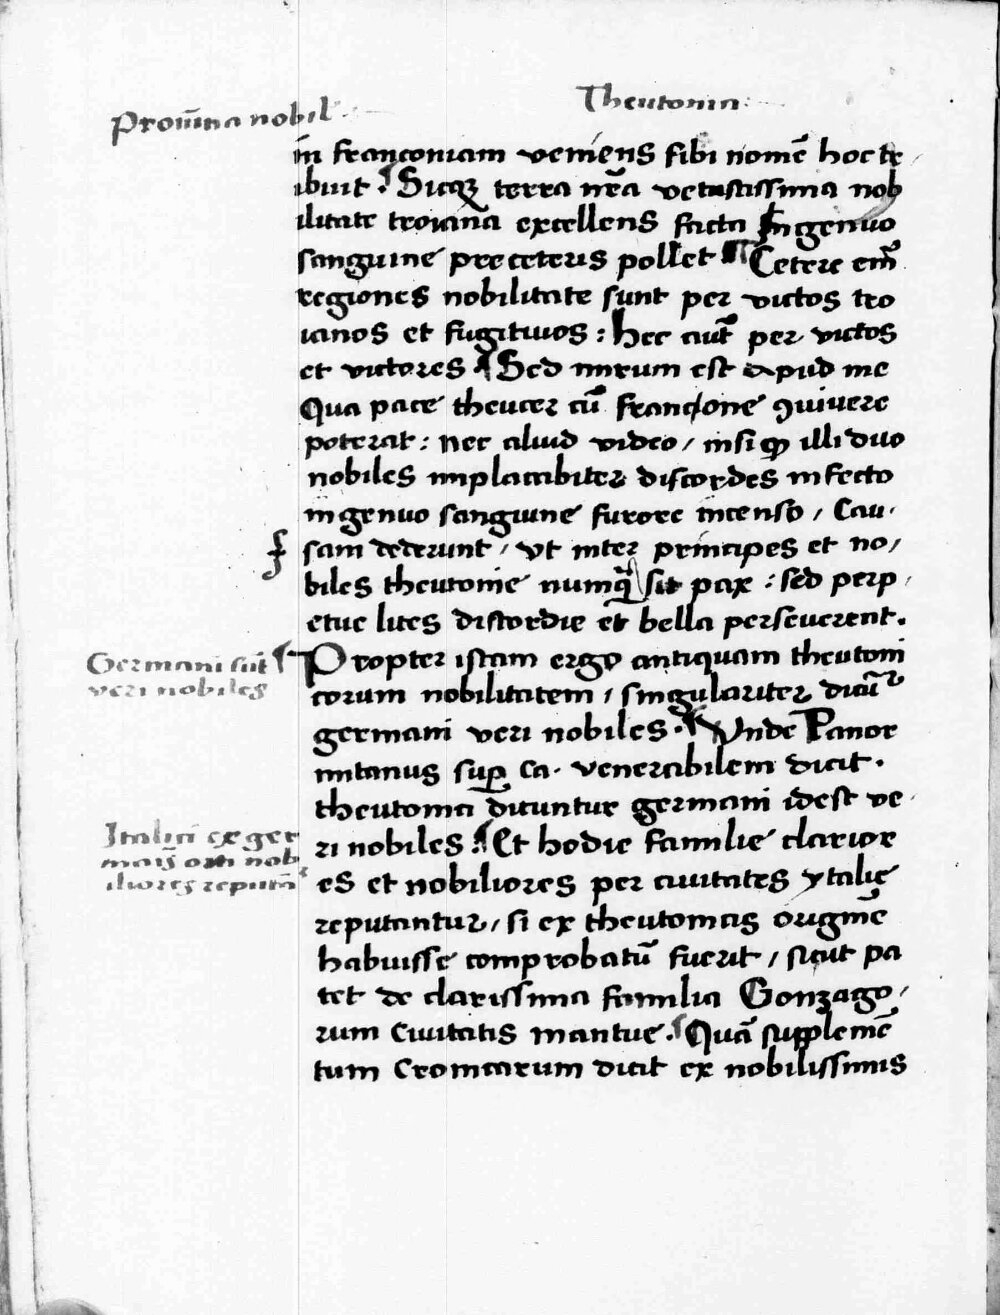 Theutonia
Proui̅tia nobil
in franconiam veniens sibi nome̅ hoc tr
ibuit. Sicq; terra nr̅a vetustissima nob
ilitate troiana excellens facta Ingenuo
sanguine preceteris pollet ¶ Cetere em̅
regiones nobilitate sunt per victos tro
ianos et fugitiuos : hec aut̅ per victos
et victores ¶ Sed mirum est apud me
Qua pace theucer cu̅ francione ꝯviuere
poterat : nec aliud video / nisi ꝙ illi duo
nobiles implacabiter discordes infecto
ingenuo sanguine furore incenso / Cau-
sam dederunt / vt inter principes et no/
biles theutonie numq̅ sit pax : sed perp/
etue lites discordie et bella perseuerent.
Germani su̅t
veri nobiles
¶ Propter istam ergo antiquam theutoni
corum nobilitatem / singulariter dicu̅t᷑
germani veri nobiles. ¶ Vnde Panor
mitanus sup̱ ca. venerabilem dicit.
theutonia dicuntur germani idest ve-
Italici ex ger
iliores reputa̅t᷑
ri nobiles ¶ Et hodie familie clarior
es et nobiliores per ciuitates ytalię
reputantur / si ex theutonias origine̅
habuisse comprobatu̅ fuerit / sicut pa
tet de clarissima familia Gonzago/
rum Ciuitatis mantue. ¶ Qua̅ suppleme̅
tum Cronicarum dicit ex nobilissimis